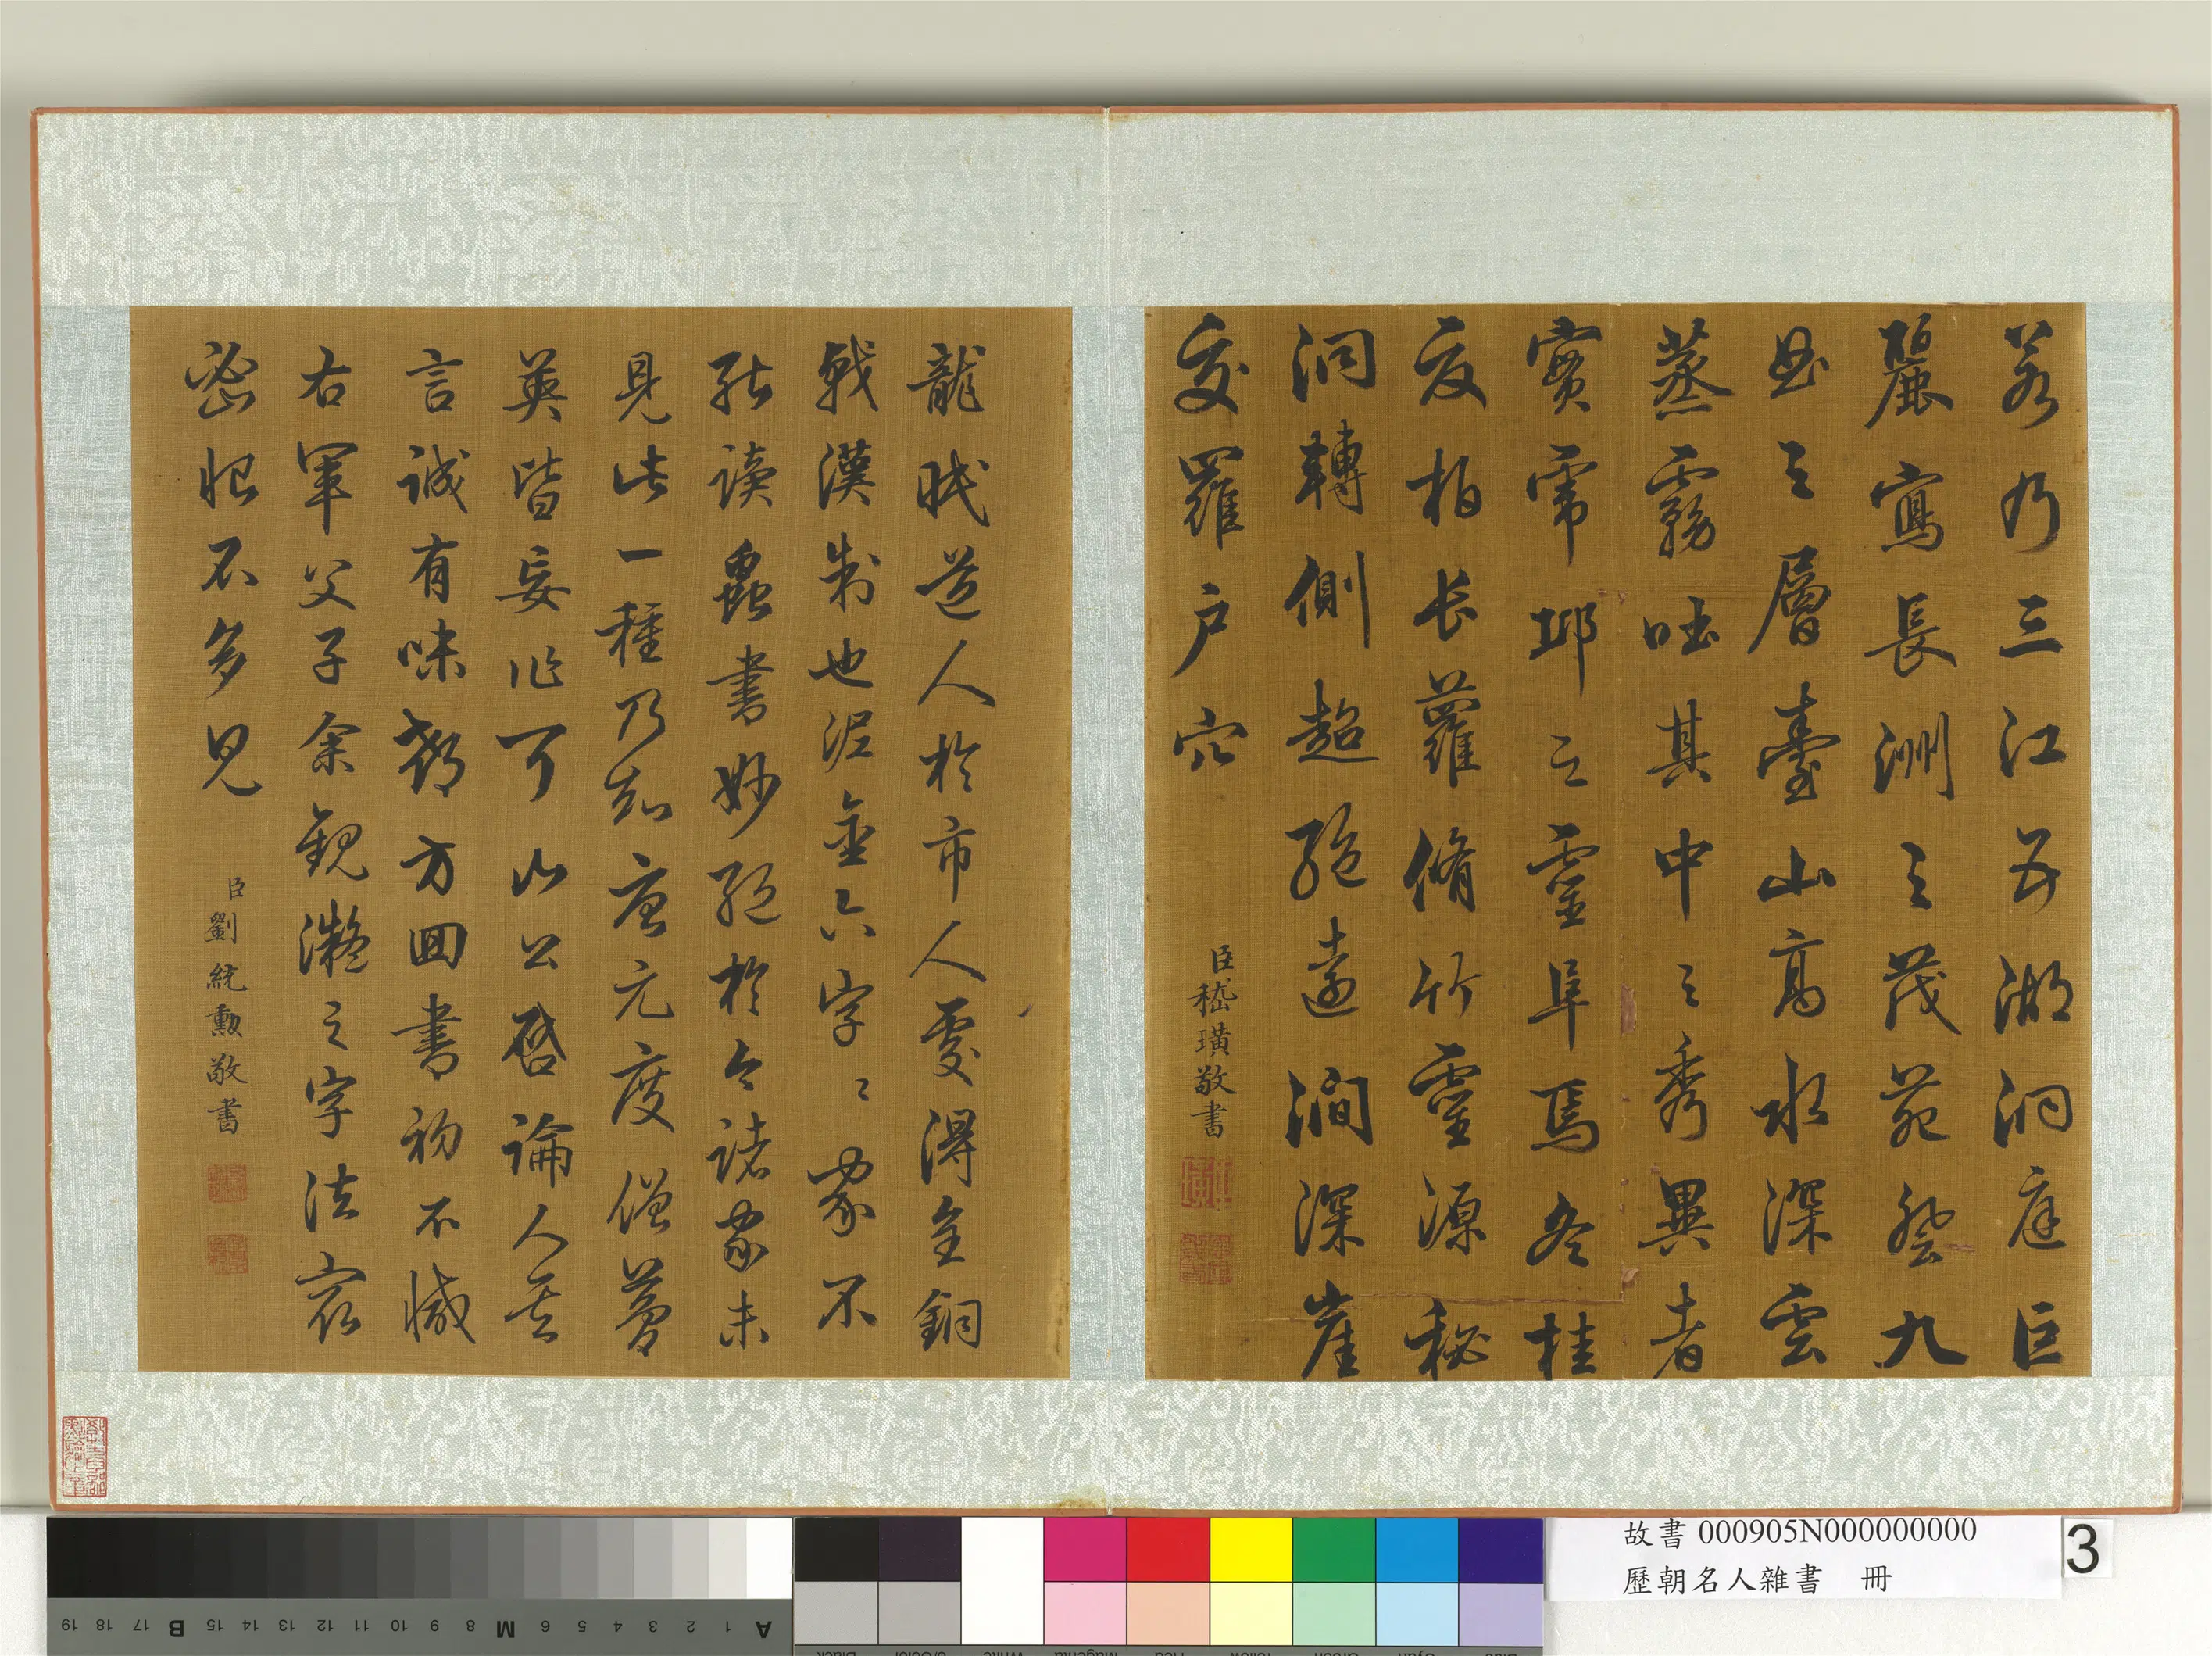 若乃三江五湖洞庭巨
麗寫長洲之茂苑登九
曲之層臺山高水深雲
蒸霧吐其中之秀異者
實虎邱之靈阜焉冬桂
夏柏長蘿脩竹靈源秘
洞轉側超絕遠澗深崖
交羅戶穴
臣嵇璜敬書
龍眠道人於市人處得金銅
戟漢制也泥金六字字家不
能讀蟲書妙絕於今諸家未
見此一種乃知唐元度僧夢
英皆妄作耳山公啓論人
言誠有味郗方回書初不減
右軍父子余觀凝之字法寂
密恨不多見
臣劉統勳敬書
故書 000905N000000000
歷朝名人雜書 冊
3
A 1 2 3 4 5 6 M 8 9 10 11 12 13 14 15 B 17 18 19